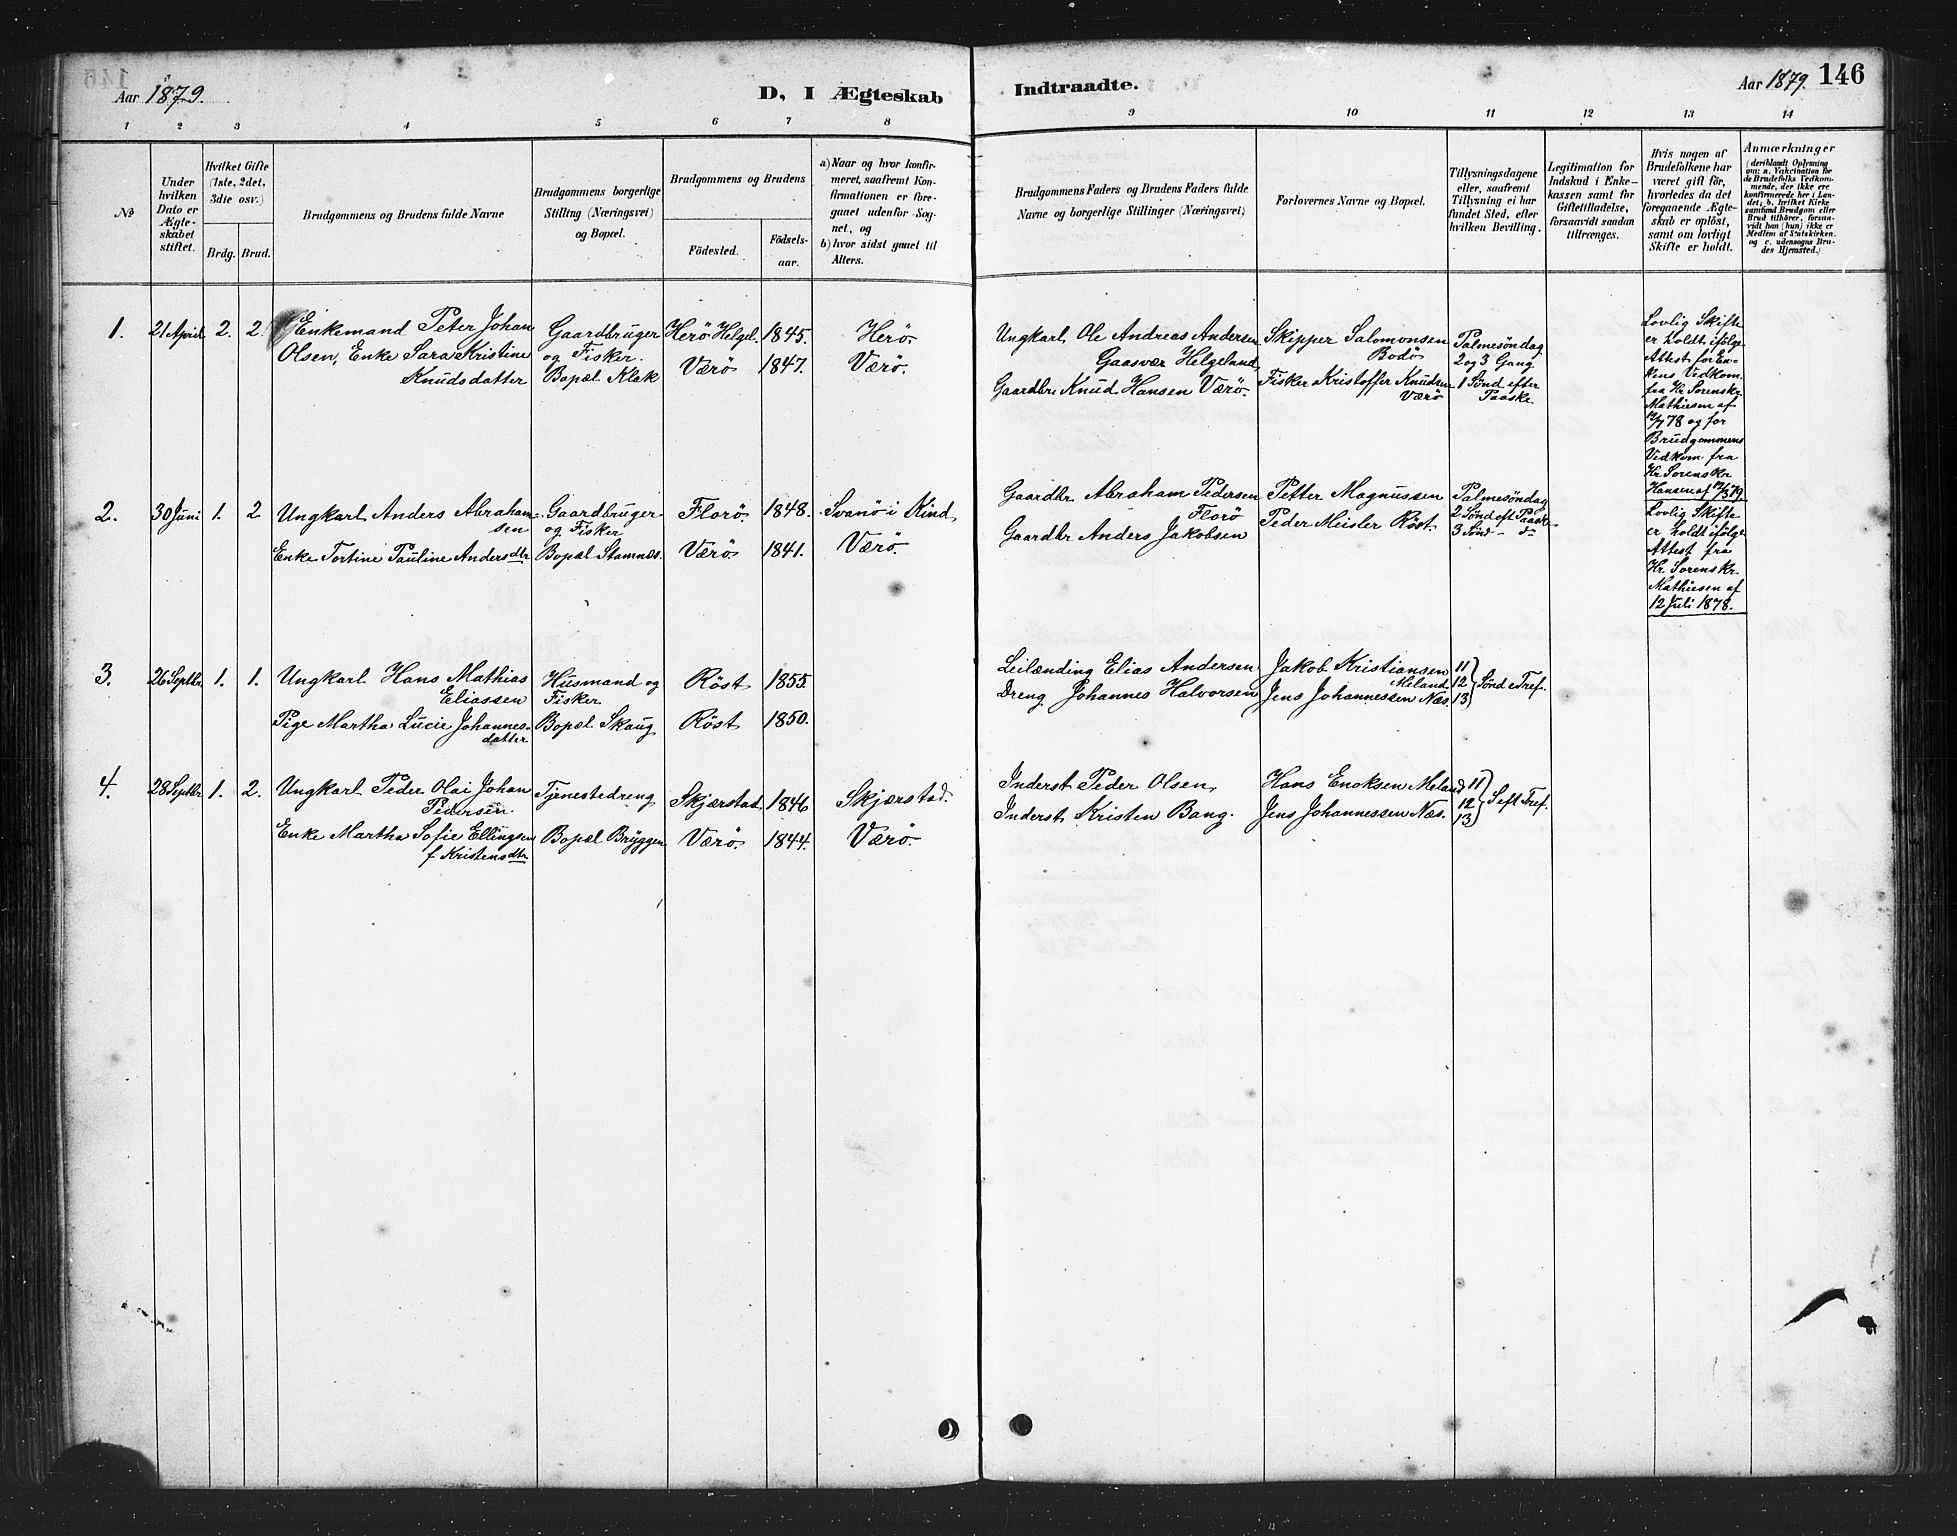 Aar 1879.
D, I Ægteskab
Indtraadte.
Aar 1879. 146
1 2 3 4 5 6 7 8 9 10 11 12 13 14
№
Under hvilken Dato er Ægte-skabet stiftet.
Hvilket Gifte (1ste, 2det, 3die osv.)
Brdg. Brud.
Brudgommens og Brudens fulde Navne
Brudgommens borgerlige Stilling (Næringsvei) og Bopæl.
Brudgommens og Brudens
Födested.
Födsels-aar.
a) Naar og hvor konfir-
meret, saafremt Kon-
firmationen er fore-
gaaet udenfor Sog-
net, og
b) hvor sidst gaaet til
Alters.
Brudgommens Faders og Brudens Faders fulde
Navne og borgerlige Stillinger (Næringsvei)
Forlovernes Navne og Bopæl.
Tillysningsdagene
eller, saafremt
Tillysning ei har
fundet Sted, efter
hvilken Bevilling.
Legitimation for
Indskud i Enke-
kassen samt for
Giftetilladelse,
forsaavidt saadan
tiltrænges.
Hvis nogen af
Brudefolkene har
været gift för,
hvorledes da det
foregaaende Ægte-
skab er oplöst,
samt om lovligt
Skifte er holdt.
Anmærkninger
(deriblandt Oplysning
om: a. Vakcination for
de Brudefolks Vedkom-
mende, der ikke ere
konfirmerede her i Lan-
det; b. hvilket Kirke
samfund Brudgom eller
Brud tilhörer, forsaa-
vidt han (hun) ikke er
Medlem af Statskirken,
og c. udensogns Bru-
des Hjemsted.)
1. 21 April 2. 2. Enkemand Peter Johan
Olsen, Enke Sara Kristine
Knudsdatter
Gaardbruger
og Fisker.
Bopæl Klak
Herö Helgel. 1845. Herö
Værö 1847. Værö.
Ungkarl Ole Andreas Andersen
Gaasvær Helgeland
Gaardbr. Knud Hansen Værö.
Skipper Salomonsen
Bodö
Fisker Kristoffer Knudsen
Værö
Palmesöndag
2 og 3 Gang
1 Sönd efter
Paaske.
Lovlig Skifte
er holdt ifölge
Attest for En-
kens Vedkom.
fra Hr. Sorenskr.
Mathiesen af
12/7 78 og for
Brudgommens
Vedkom. fra
Hr. Sorenskr.
Hansen af 19/3 79
2. 30 Juni 1. 2 Ungkarl Anders Abraham-
sen
Enke Tortine Pauline Andersdtr
Gaardbruger
og Fisker
Bopæl Stamnæs.
Florö. 1848. Svanö i Kind
Værö 1841. Værö.
Gaardbr. Abraham Pedersen
Florö
Gaardbr Anders Jakobsen
Petter Magnussen
Peder Meisler Röst.
Palmesöndag
2 Sönd eft Paaske
3 Sönd - d-
Lovlig Skifte
er holdt ifölge
Attest fra
Hr. Sorenskr.
Mathiesen af
12 Juli 1878.
3. 26 Septbr. 1. 1. Ungkarl Hans Mathias
Eliassen
Pige Martha Lucie Johannes-
datter
Husmand og
Fisker
Bopæl Skaug
Röst 1855.
Röst 1850.
Leilænding Elias Andersen
Dreng Johannes Halvorsen
Jakob Kristiansen
Meland
Jens Johannessen Næs.
11
12 Sönd e Tref.
13
4. 28 Septbr. 1. 2. Ungkarl Peder Olai Johan
Pedersen
Enke Martha Sofie Ellingsen
f Kristensdtr.
Tjenestedreng
Bopæl Bryggen
Skjærstad 1846 Skjærstad.
Værö. 1844. Værö.
Inderst Peder Olsen,
Inderst Kristen Bang.
Hans Enoksen Meland
Jens Johannessen Næs.
11
12 S eft Tref.
13